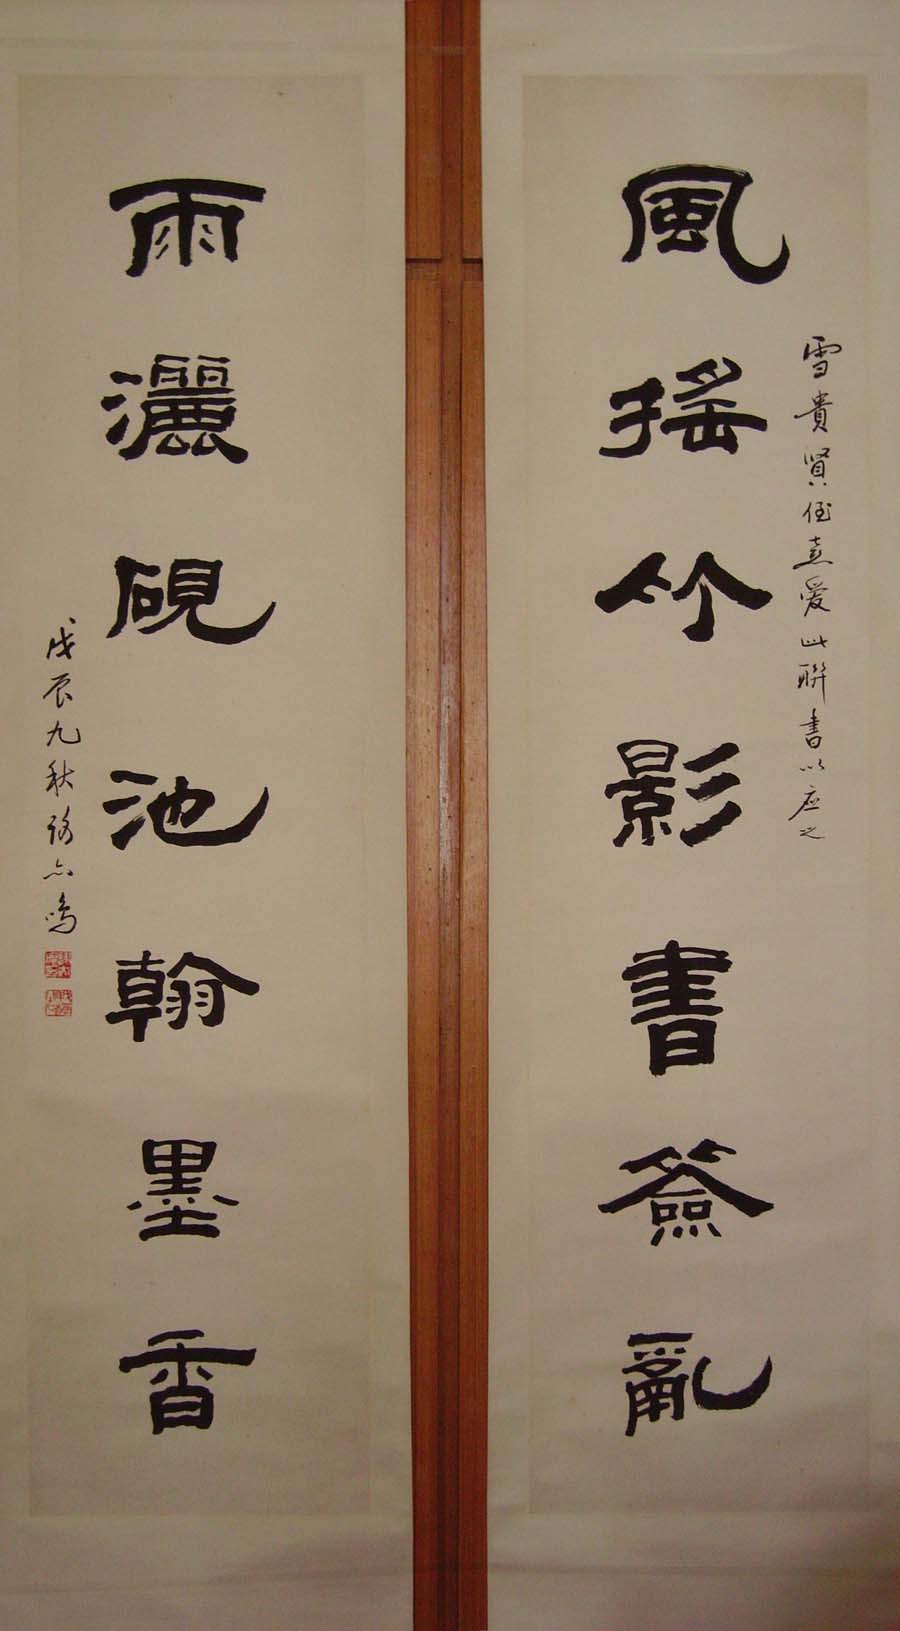 風搖竹影書簽亂
雪貴賢侄喜愛此聯書以应之
雨灑硯池翰墨香
戊辰九秋 鳴